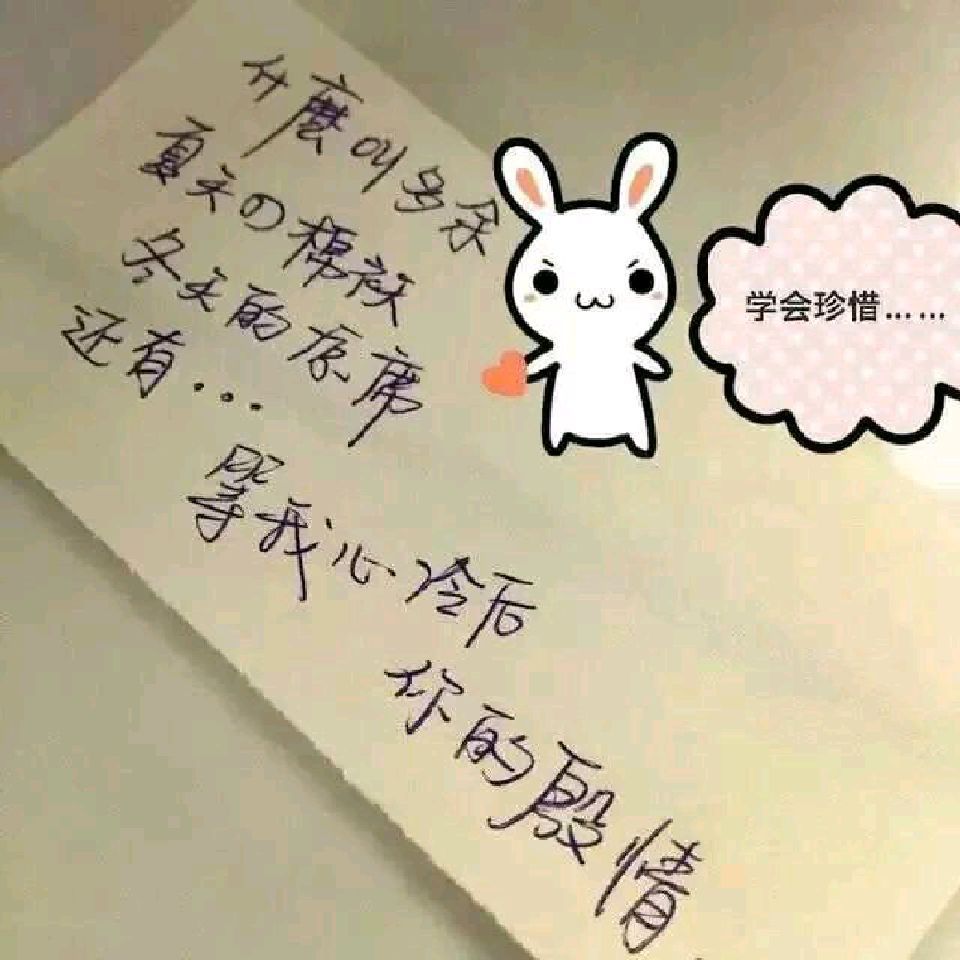 什麼叫多余
夏天の棉袄
冬天的凉席
还有...
等我心冷后
你的殷情
学会珍惜......